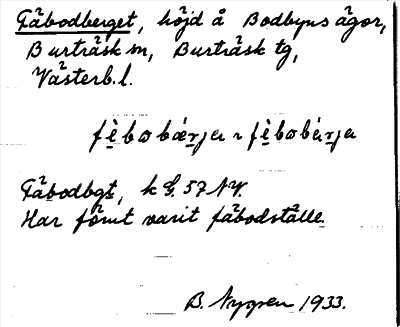 Fäbodberget, höjd å Bodbyns ägor,
Burträsk sn, Burträsk tg,
Västerb. l.
fèbobærja ~ fèbobárja
Fäbodbgt, k G. 57 NV.
Har fömt varit fäbodställe.
B. Nygren 1933.